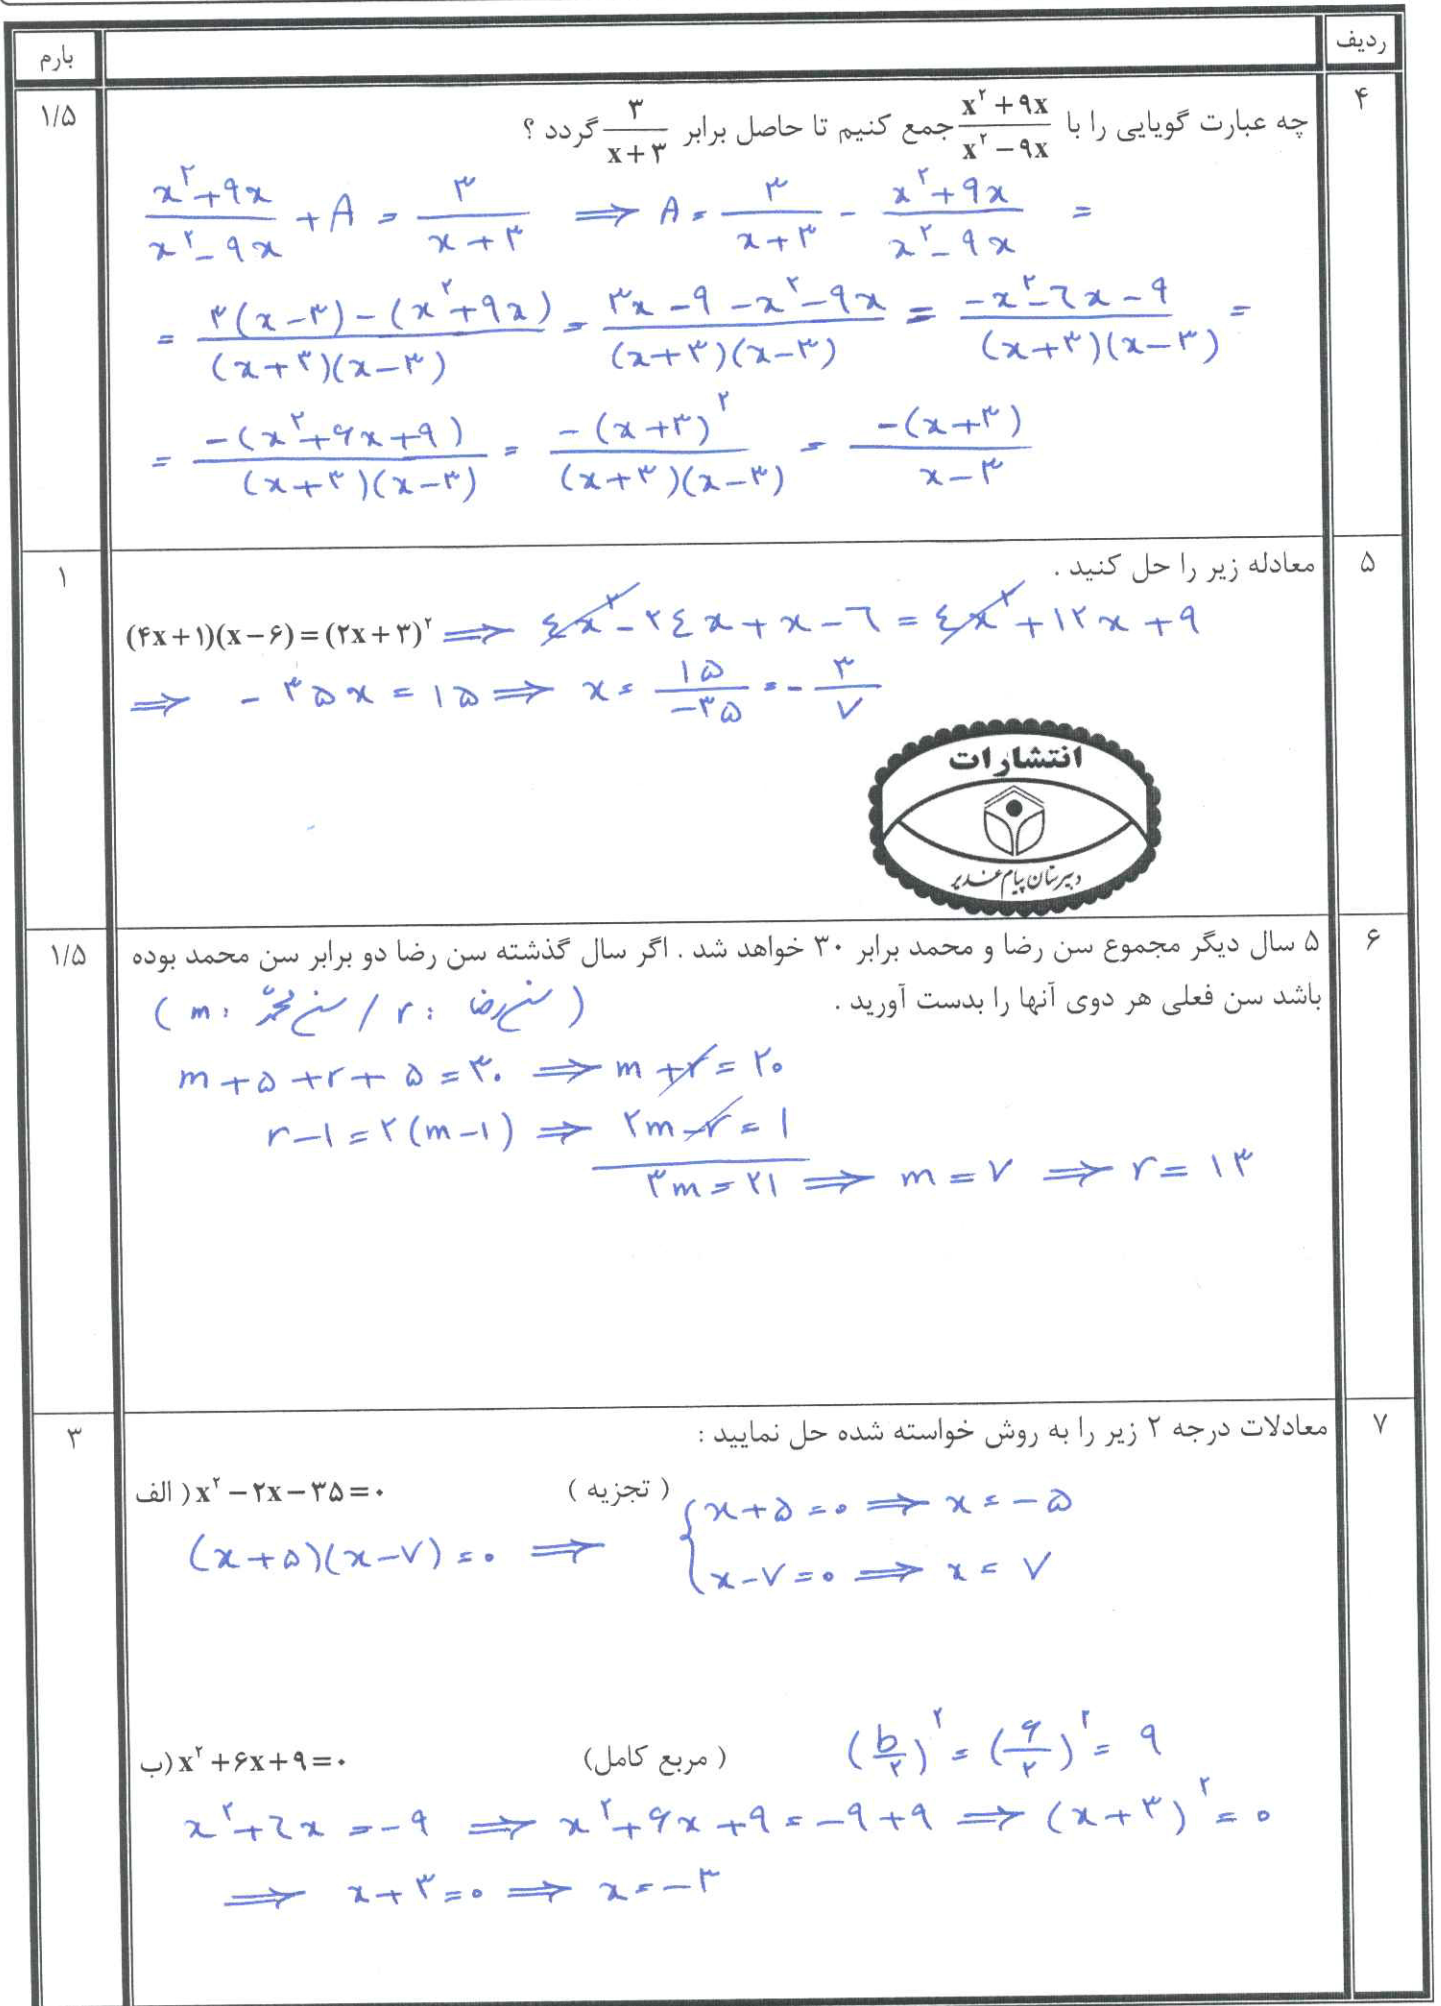 ردیف
بارم
۴
۱/۵
چه عبارت گویایی را با (x^۲ + ۹x)/(x^۲ − ۹x) جمع کنیم تا حاصل برابر ۳/(x + ۳) گردد ؟
(x^۲ + ۹x)/(x^۲ − ۹x) + A = ۳/(x + ۳) ⟹ A = ۳/(x + ۳) − (x^۲ + ۹x)/(x^۲ − ۹x) =
= (۳(x − ۳) − (x^۲ + ۹x))/((x + ۳)(x − ۳)) = (۳x − ۹ − x^۲ − ۹x)/((x + ۳)(x − ۳)) = (−x^۲ − ٦x − ۹)/((x + ۳)(x − ۳)) =
= −(x^۲ + ۶x + ۹)/((x + ۳)(x − ۳)) = −(x + ۳)^۲/((x + ۳)(x − ۳)) = −(x + ۳)/(x − ۳)
۵
۱
معادله زیر را حل کنید .
(۴x + ۱)(x − ۶) = (۲x + ۳)^۲ ⟹ ٤x^۲ − ۲٤x + x − ٦ = ٤x^۲ + ۱۲x + ۹
⟹ −۳۵x = ۱۵ ⟹ x = ۱۵/−۳۵ = −۳/۷
انتشارات
دبیرستان پیام غدیر
۶
۱/۵
۵ سال دیگر مجموع سن رضا و محمد برابر ۳۰ خواهد شد . اگر سال گذشته سن رضا دو برابر سن محمد بوده
باشد سن فعلی هر دوی آنها را بدست آورید .
( سن رضا : r / سن محمّد : m )
m + ۵ + r + ۵ = ۳۰ ⟹ m + r = ۲۰
r − ۱ = ۲(m − ۱) ⟹ ۲m − r = ۱
۳m = ۲۱ ⟹ m = ۷ ⟹ r = ۱۳
۷
۳
معادلات درجه ۲ زیر را به روش خواسته شده حل نمایید :
الف) x^۲ − ۲x − ۳۵ = ۰ ( تجزیه )
(x + ۵)(x − ۷) = ۰ ⟹ { x + ۵ = ۰ ⟹ x = −۵
x − ۷ = ۰ ⟹ x = ۷
ب) x^۲ + ۶x + ۹ = ۰ ( مربع کامل) (b/۲)^۲ = (۶/۲)^۲ = ۹
x^۲ + ٦x = −۹ ⟹ x^۲ + ۶x + ۹ = −۹ + ۹ ⟹ (x + ۳)^۲ = ۰
⟹ x + ۳ = ۰ ⟹ x = −۳